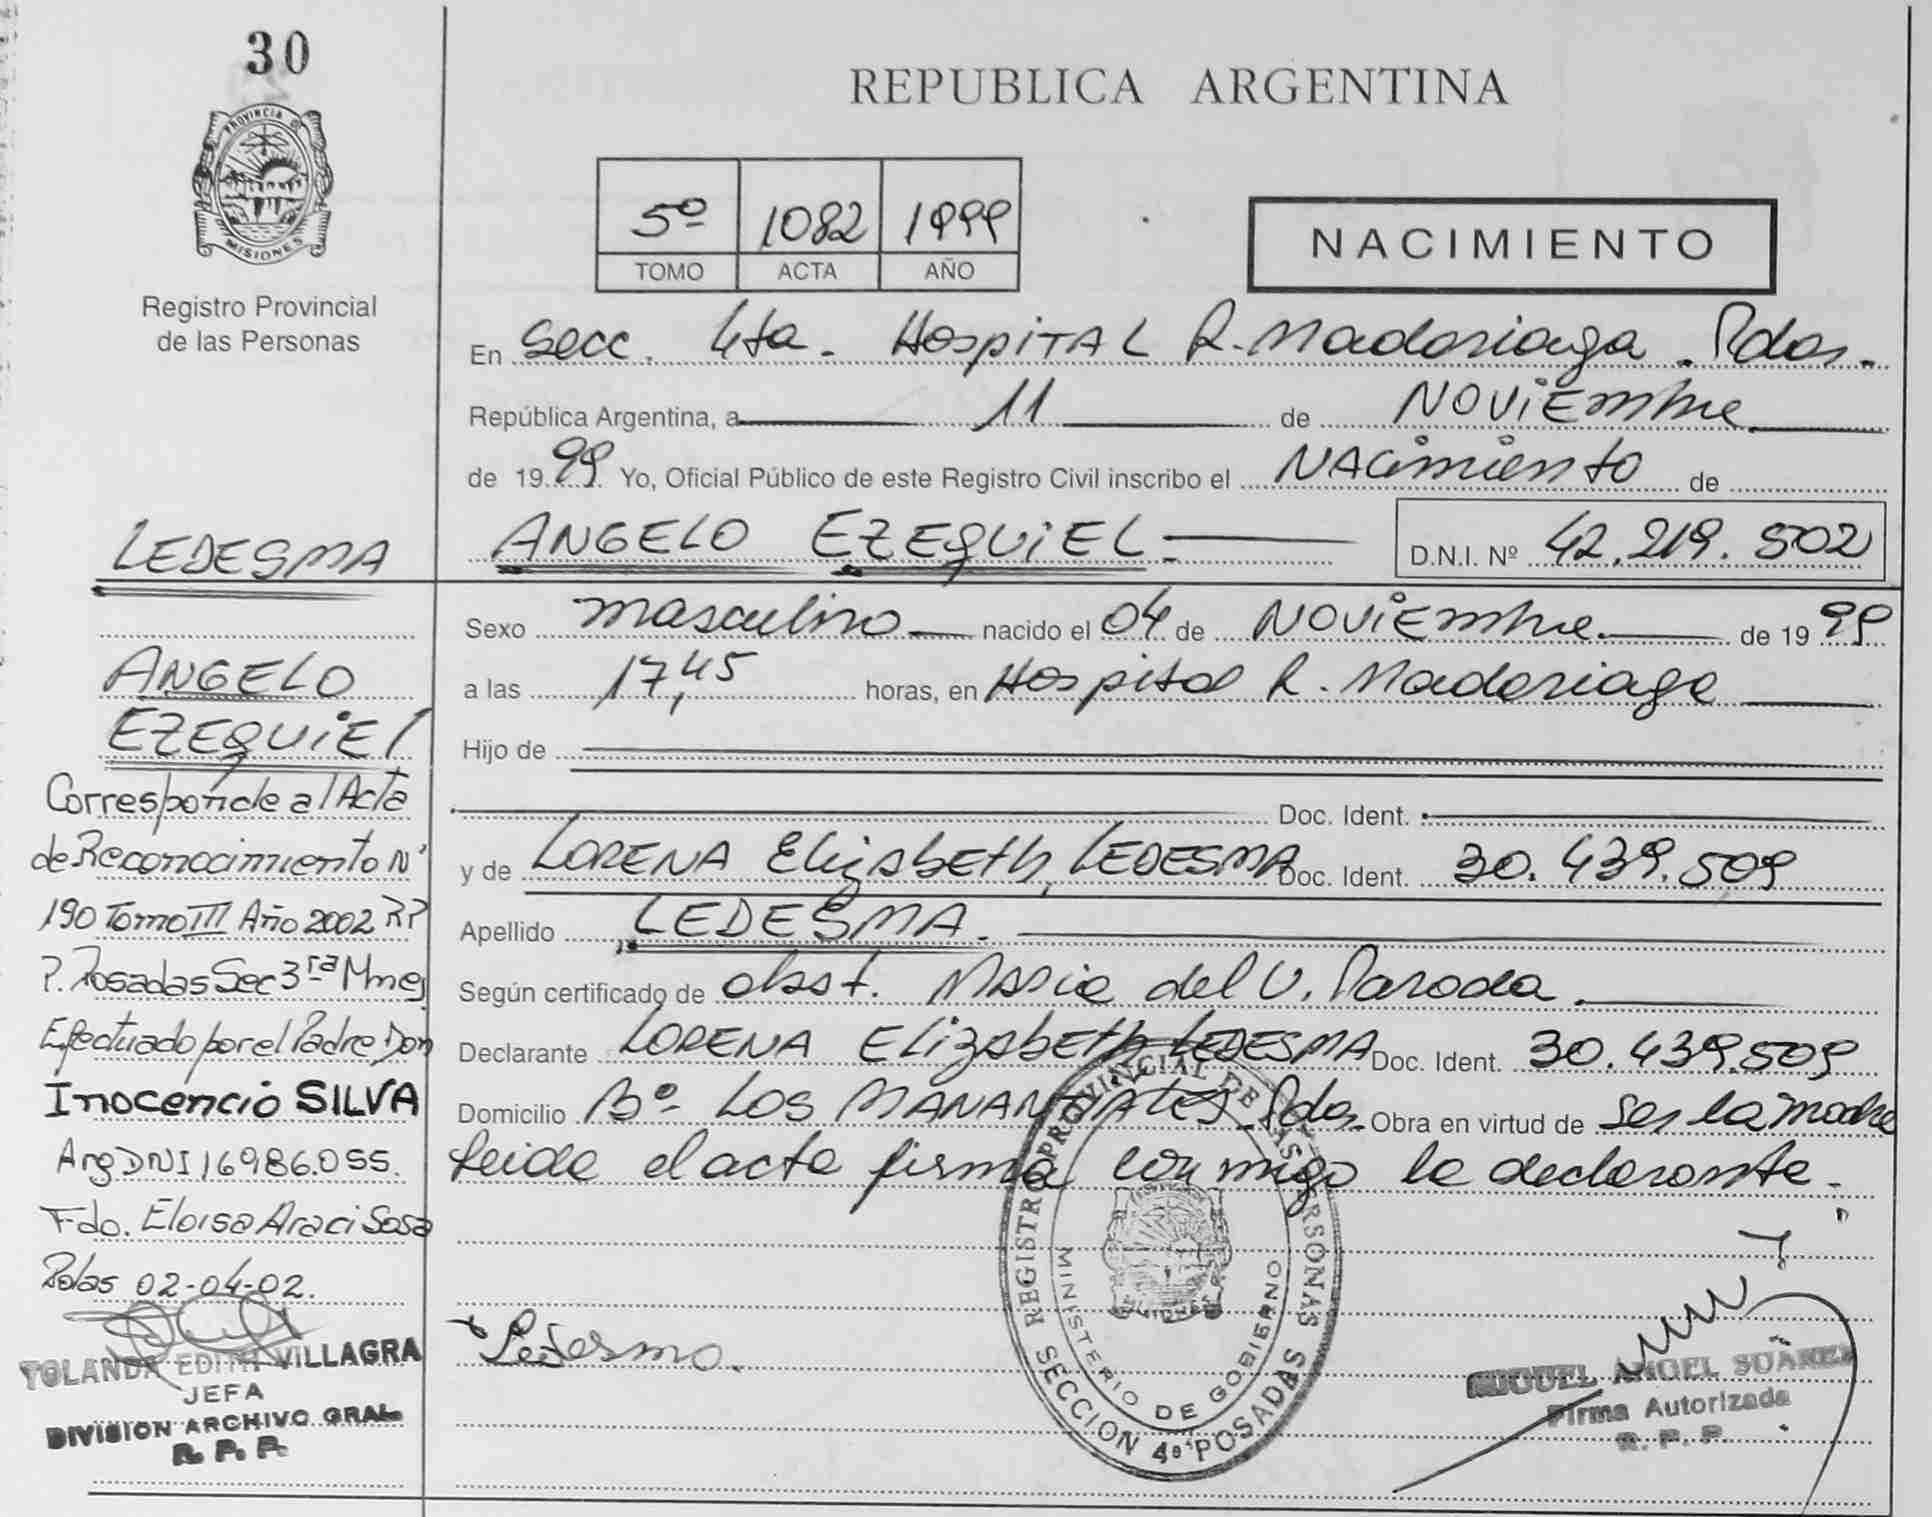 30
PROVINCIA DE
MISIONES
Registro Provincial
de las Personas
LEDESMA
ANGELO
EZEQUIEL
Corresponde al Acta
de Reconocimiento Nº
190 Tomo III Año 2002 RP
P. Posadas Sec 3ra Mnes
Efectuado por el Padre Don
Inocencio SILVA
Arg DNI 16986.055.
Fdo. Eloisa Araci Sosa
Pdas 02-04-02.
YOLANDA EDITH VILLAGRA
JEFA
DIVISION ARCHIVO GRAL
R. P. P.
REPUBLICA ARGENTINA
5º 1082 1999
TOMO ACTA AÑO
NACIMIENTO
En Secc. 4ta. Hospital R. Madariaga. Pdas.
República Argentina, a 11 de Noviembre
de 19 99 Yo, Oficial Público de este Registro Civil inscribo el Nacimiento de
ANGELO EZEQUIEL.
D.N.I. Nº 42.219.502
Sexo masculino nacido el 04 de Noviembre de 19 99
a las 17,45 horas, en Hospital R. Madariaga
Hijo de
Doc. Ident.
y de LORENA Elizabeth LEDESMA Doc. Ident. 30.439.509
Apellido LEDESMA.
Según certificado de obst. Maria del V. Paroda.
Declarante LORENA Elizabeth LEDESMA Doc. Ident. 30.439.509
Domicilio Bº LOS MANANTIALES Pdas. Obra en virtud de Ser la madre
leida el acta firma conmigo la declarante.
Ledesma.
REGISTRO PROVINCIAL DE LAS PERSONAS
MINISTERIO DE GOBIERNO
SECCION 4º POSADAS
MIGUEL ANGEL SUAREZ
Firma Autorizada
R. P. P.